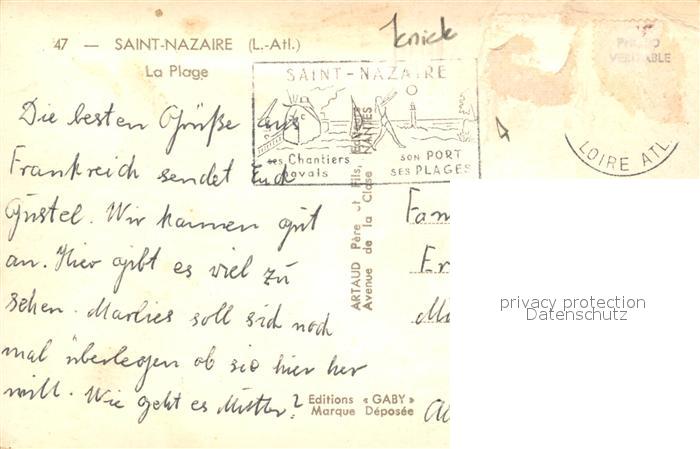 47 — SAINT-NAZAIRE (L.-Atl.)
La Plage
Knick
SAINT-NAZAIRE
ses Chantiers
navals
SON PORT
SES PLAGES
LOIRE ATL.
VERITABLE
Die besten Grüße aus
Frankreich sendet Euch
Gustel. Wir kamen gut
an. Hier gibt es viel zu
sehen. Marlies soll sich noch
mal überlegen ob sie hier her
will. Wie geht es Mutter?
ARTAUD Père et Fils, Éditeurs
Avenue de la Close NANTES
Editions « GABY »
Marque Déposée
Fam
Er
privacy protection
Datenschutz